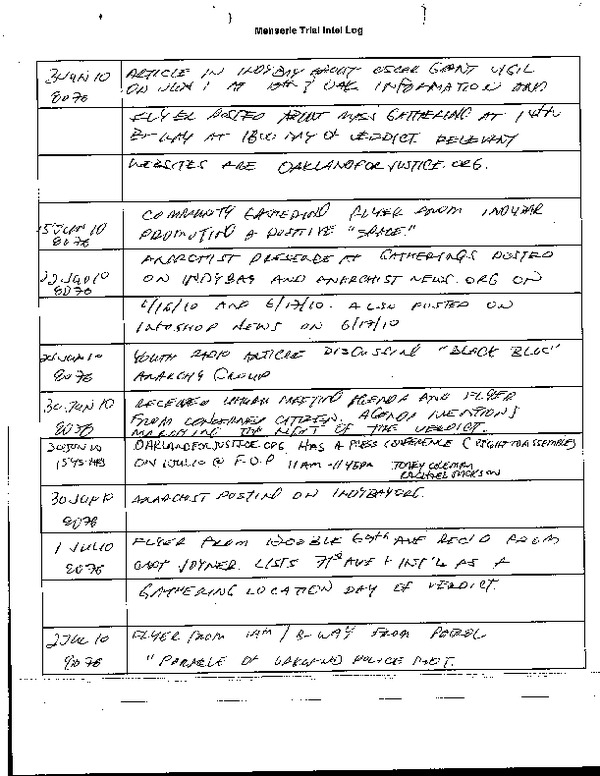 Menserle Trial Intel Log
3 JUN 10 ARTICLE IN INDYBAY ABOUT OSCAR GRANT VIGIL
8076 ON JUN 1 AT 14TH / OAK INFORMATION AND
FLYER POSTED ABOUT MASS GATHERING AT 14TH
B-WAY AT 1800 DAY OF VERDICT. RELEVANT
WEBSITES ARE OAKLANDFORJUSTICE.ORG.
COMMUNITY GATHERING FLYER FROM INDYBAY
15 JUN 10 PROMOTING A POSITIVE "SPACE"
8076
ANARCHIST PRESENCE AT GATHERINGS POSTED
22 JUN 10 ON INDYBAY AND ANARCHIST NEWS.ORG ON
8076
6/16/10 AND 6/17/10. ALSO POSTED ON
INFOSHOP NEWS ON 6/17/10
JUN 10 YOUTH RADIO ARTICLE DISCUSSING "BLACK BLOC"
8076 ANARCHY GROUP
30 JUN 10 RECEIVED URBAN MEETING AGENDA AND FLYER
FROM CONCERNED CITIZEN. AGENDA MENTIONS
8076 MARCHING THE NIGHT OF THE VERDICT.
30 JUN 10 OAKLANDFORJUSTICE.ORG HAS A PRESS CONFERENCE (RIGHT TO ASSEMBLE)
1545 HRS ON 1 JUL 10 @ F.O.P 11AM - 1145PM TONEY COLEMAN
RACHAEL JACKSON
30 JUN 10 ANARCHIST POSTING ON INDYBAY.ORG.
8076
1 JUL 10 FLYER FROM 1200 BLK 69TH AVE RECVD FROM
8076 JOYNER. LISTS 71ST AVE + INT'L AS A
GATHERING LOCATION DAY OF VERDICT.
2 JUL 10 FLYER FROM 14TH / B-WAY FROM PATROL
8076 "PEOPLE OF OAKLAND POLICE DEPT.